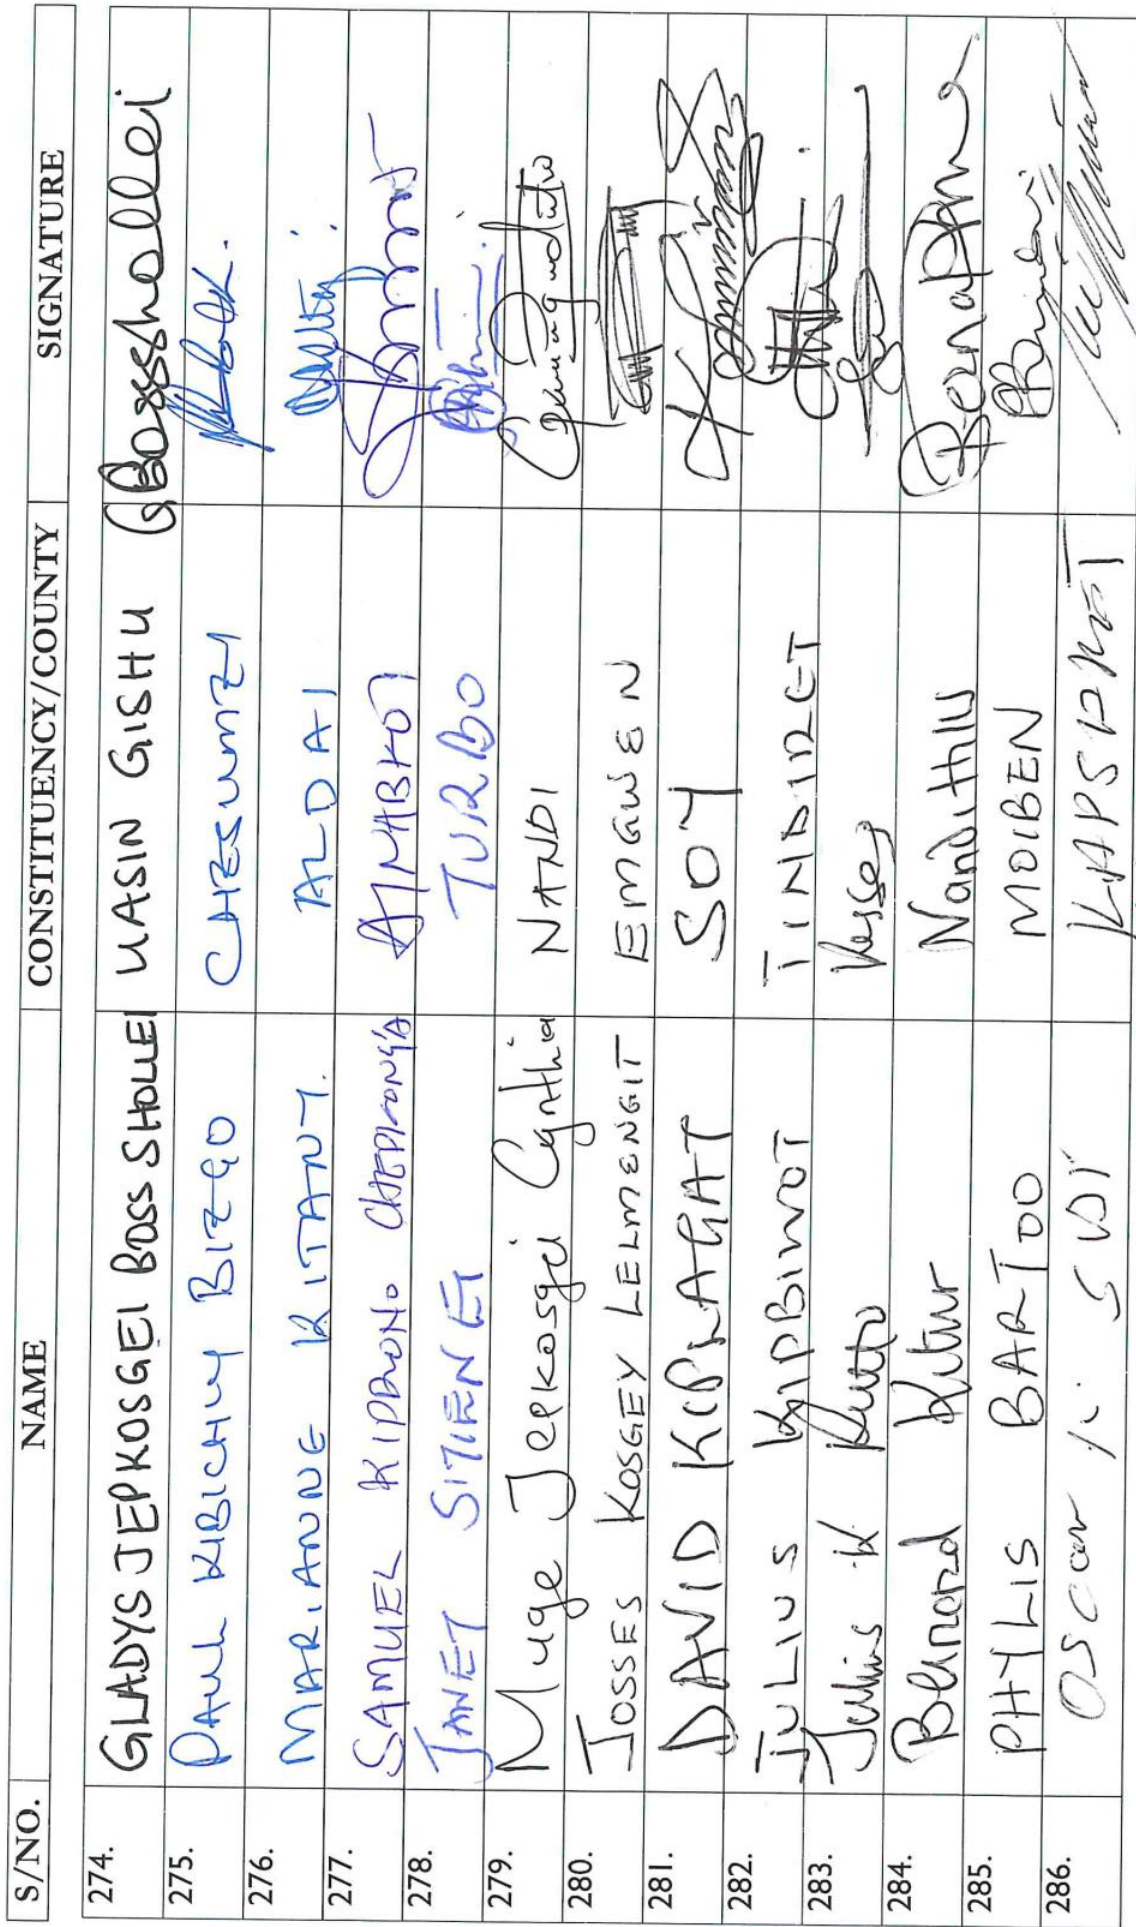 S/NO. NAME CONSTITUENCY/COUNTY SIGNATURE
274. GLADYS JEPKOSGEI BOSS SHOLLEI UASIN GISHU GBossshollei
275. PAUL KIBICHIY BIEGO CHESUMEI
276. MARIANNE KITANY. ALDAI
277. SAMUEL KIPRONO CHEPKONGA AINABKOI
278. JANET SITIENEI TURBO
279. Muge Jepkosgei Cynthia NANDI
280. JOSSES KOSGEY LELMENGIT EMGWEN
281. DAVID KIPLAGAT SOY
282. JULIUS KIPBIWOT TINDIRET
283. Julius K Ruto Kesses
284. Benard Kitur Nandi Hills
285. PHYLIS BARTOO MOIBEN
286. OSCAR K. SUDI KAPSARET